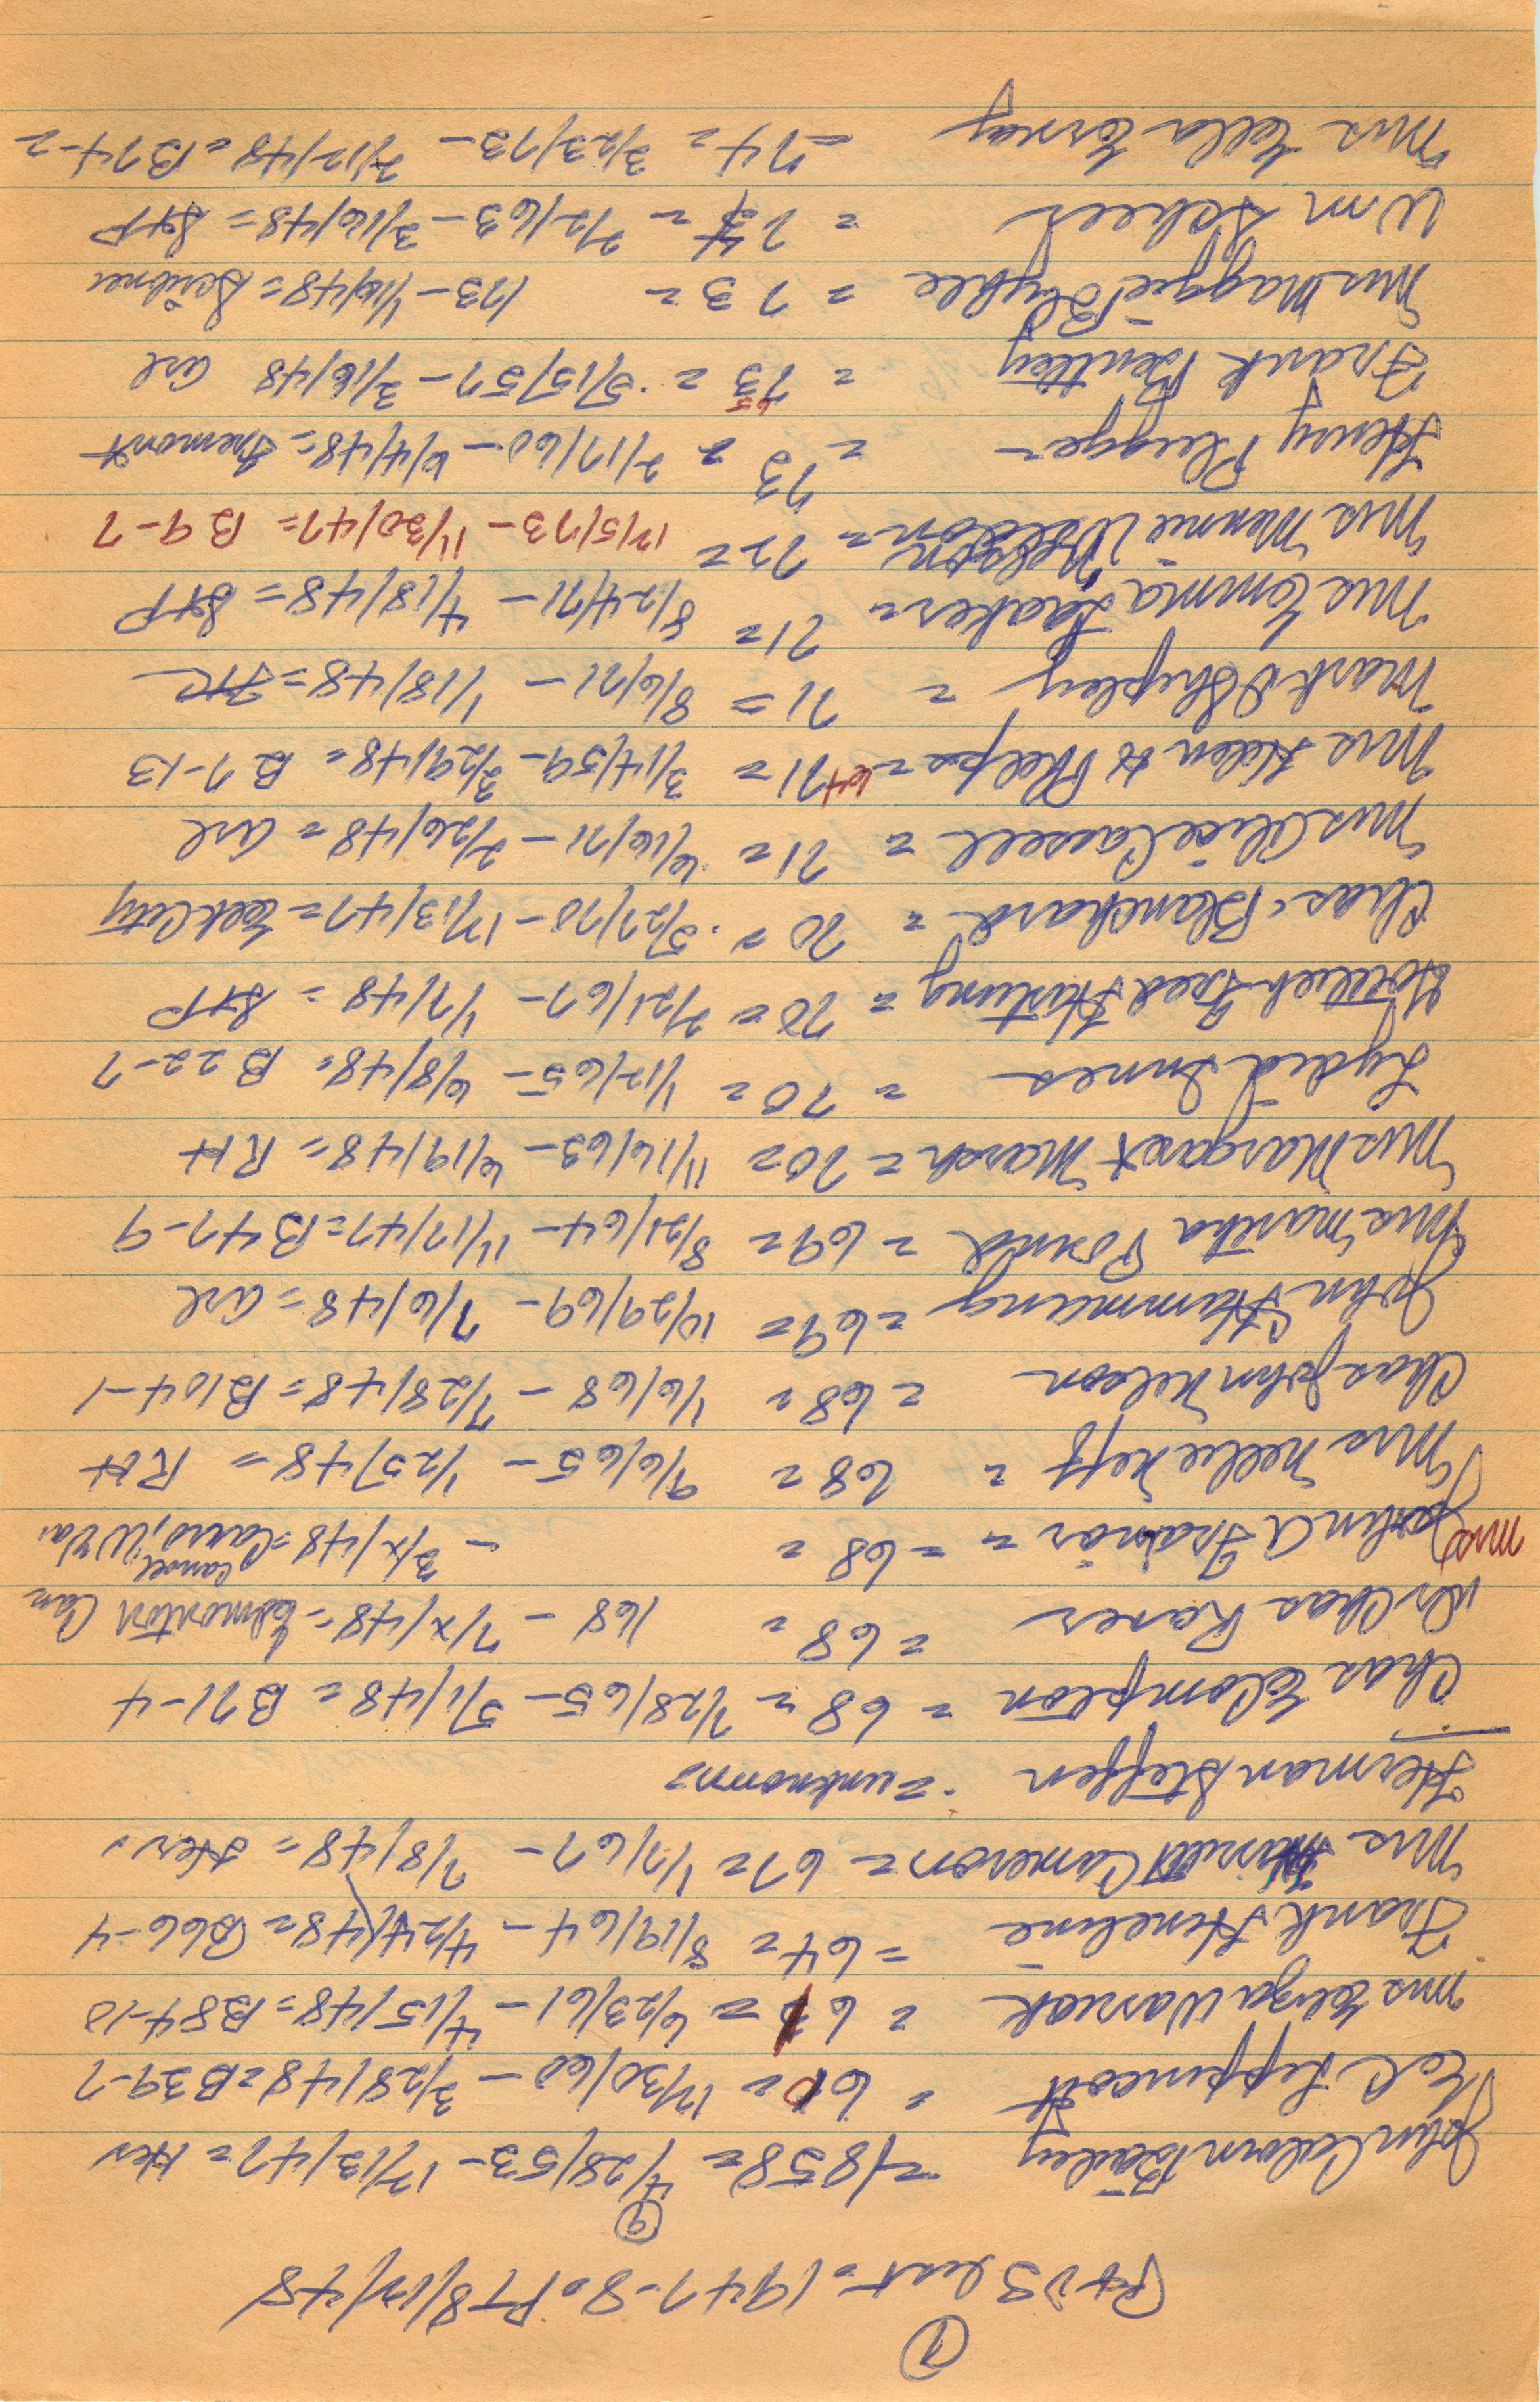 ①
P+ DS List = 1947-8. PT 8/12/48
⑨
John Calvin Bailey = 1858 = 4/28/53 - 12/13/47 = Her
E C Lippincott = 60 = 12/30/60 - 3/28/48 = B39-7
Mrs Eliza Warrick = 61 = 6/23/61 - 4/15/48 = B84-10
Frank Hineline = 64 = 8/19/64 - 4/24/48 = B66-4
Mrs Cameron = 67 = 1/7/67 - 7/8/48 = Her.
Herman Steffen = unknown =
Chas E Compton = 68 = 7/28/65 - 5/1/48 = B71-4
Dr Chas Raser = 68 = /68 - 7/x/48 = Edmonton Can
Mrs John A Frainor = 68 = - 3/x/48 = W Va.
Mrs Nellie Neff = 68 = 9/6/65 - 1/25/48 = RH
Chas John Nelson = 68 = 1/6/68 - 7/28/48 = B104-1
John Hammang = 69 = 10/29/69 - 7/6/48 = Arl
Mrs Martha Pound = 69 = 8/21/64 - 11/17/47 = B47-9
Mrs Margaret Marsh = 70 = 11/16/63 - 6/19/48 = RH
Lydia Innes = 70 = 1/12/65 - 6/8/48 = B22-7
Gottlieb Fred Hartung = 70 = 7/21/67 - 1/7/48 = StP
Chas. Blanchard = 70 = 5/27/70 - 12/13/47 = Elk City
Mrs Alice Cassell = 71 = 6/16/71 - 7/26/48 = Arl
Mrs Helen H Phelps = 64 71 = 3/14/59 - 3/29/48 = B7-13
Mark D Shipley = 71 = 8/6/71 - 1/18/48 = FtC
Mrs Emma Laaker = 71 = 8/24/71 - 4/18/48 = StP
Mrs Mennie Weldon = 72 = 12/5/73 - 11/30/47 = B9-7
Henry Plugge = 73 = 7/17/60 - 6/4/48 = Fremont
Frank Bentley = 73 65 = 5/15/57 - 3/16/48 Arl
Mrs Maggie Blythe = 73 = /73 - 1/10/48 = Scribner
Wm Scheer = 74 = 7/2/63 - 3/16/48 = StP
Mrs Ella Tornay = 74 = 3/23/73 - 7/12/48 = B74-2